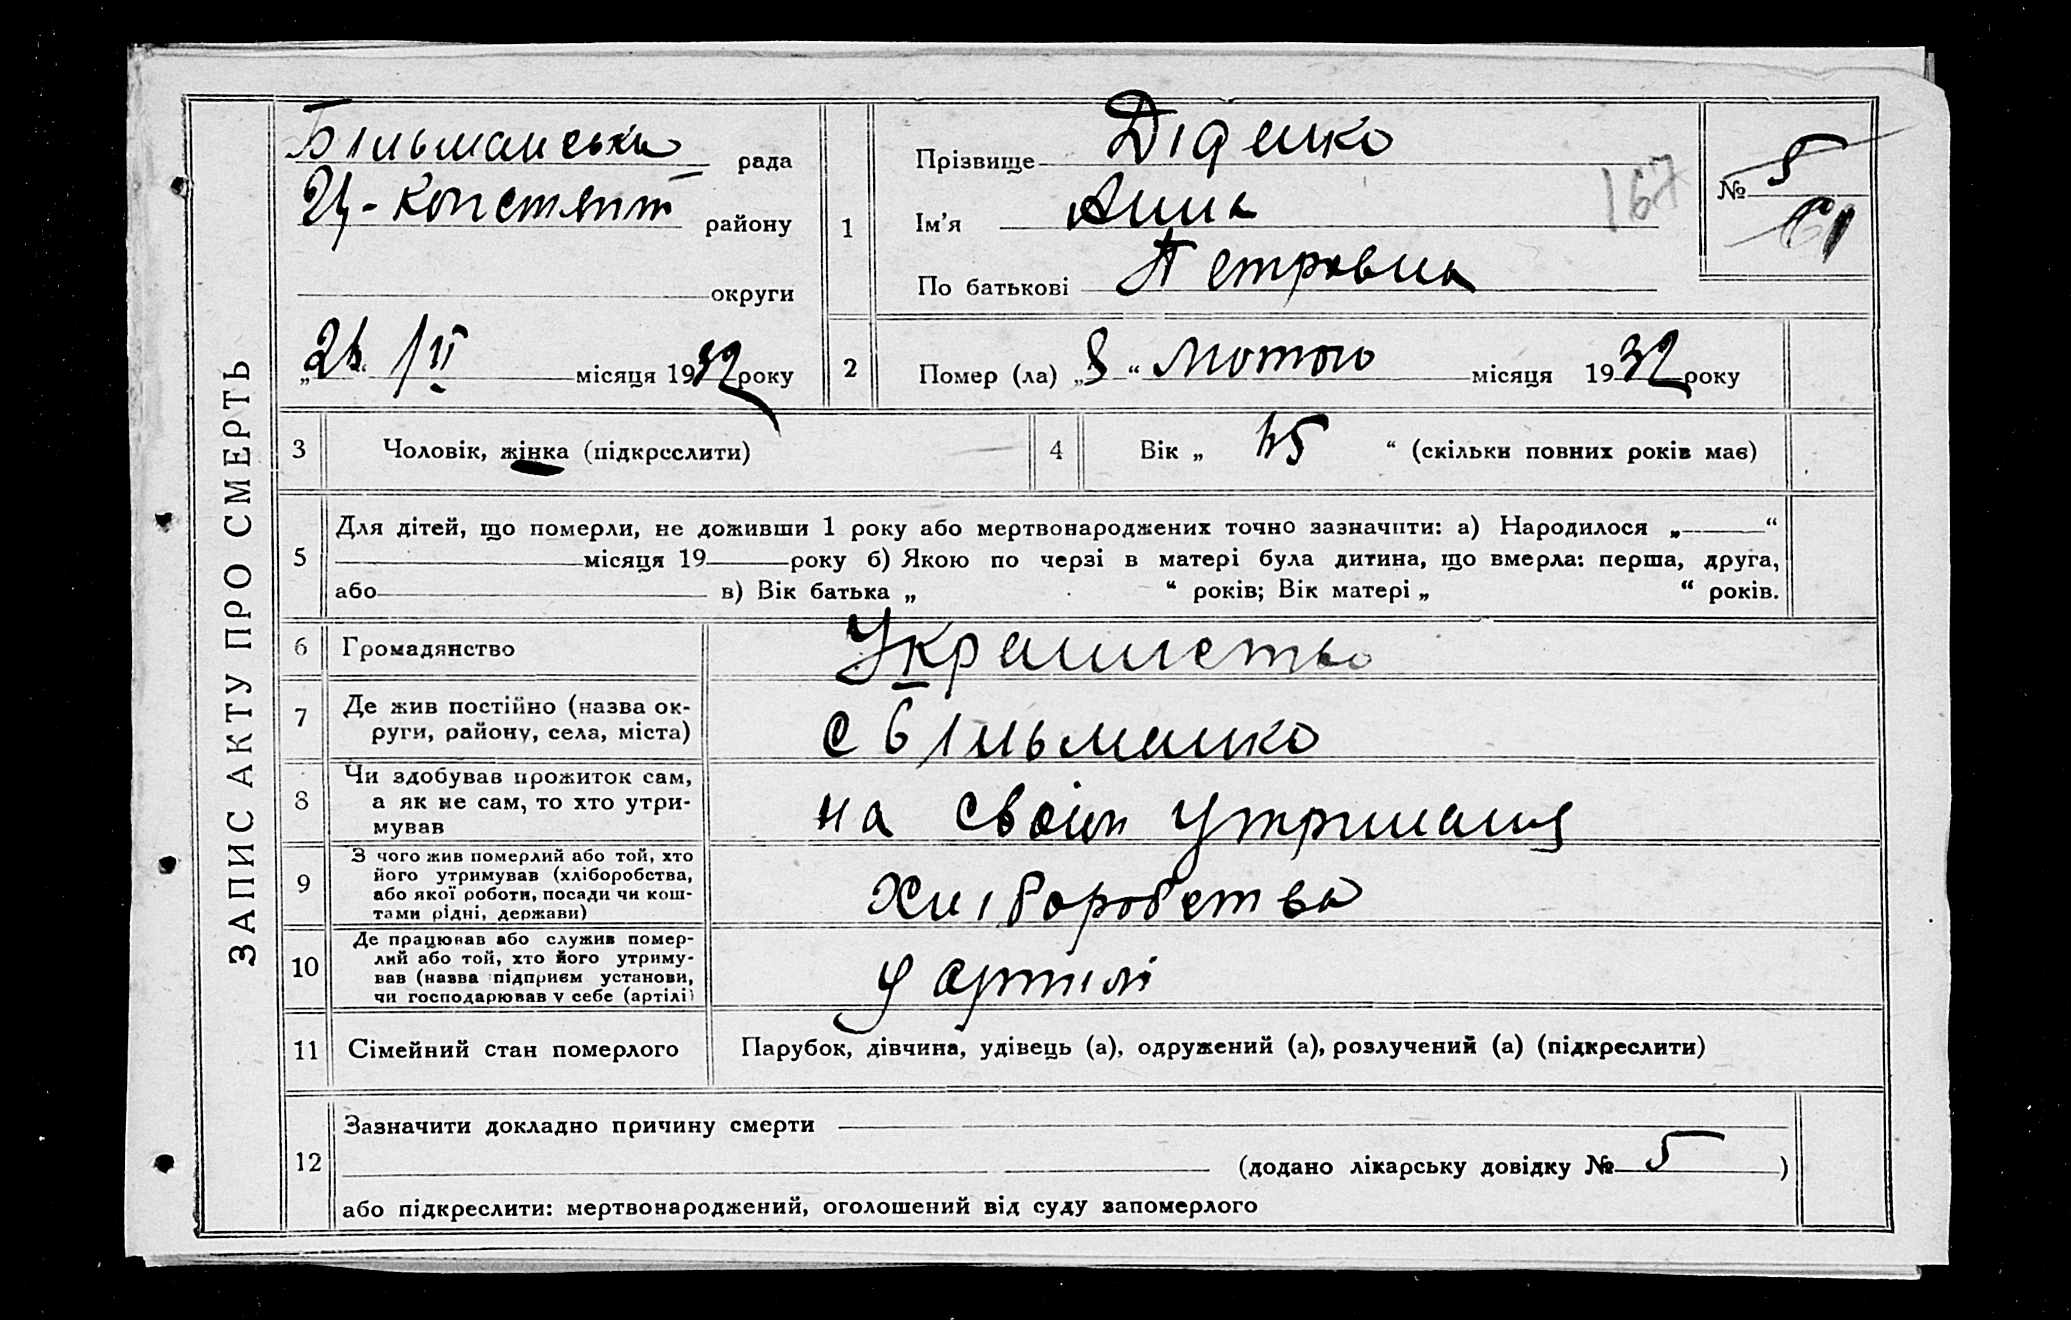 ЗАПИС АКТУ ПРО СМЕРТЬ
Більманська рада
Ц-Констянт району
округи
„ “ /II місяця 1932 року
1
Прізвище Діденко
Ім'я Анна
По батькові Петровна
167
№ 5
61
2
Помер (ла) „8“ Лютого місяця 1932 року
3
Чоловік, жінка (підкреслити)
4
Вік „45“ (скільки повних років має)
5
Для дітей, що померли, не доживши 1 року або мертвонароджених точно зазначити: а) Народилося „ “
місяця 19 року б) Якою по черзі в матері була дитина, що вмерла: перша, друга,
або в) Вік батька „ “ років; Вік матері „ “ років.
6
Громадянство
7
Де жив постійно (назва ок-
руги, району, села, міста)
с Більманко
8
Чи здобував прожиток сам,
а як не сам, то хто утри-
мував
на своїм
9
З чого жив померлий або той, хто
його утримував (хліборобства,
або якої роботи, посади чи кош-
тами рідні, держави)
Хліборобства
10
Де працював або служив помер-
лий або той, хто його утриму-
вав (назва підприєм установи,
чи господарював у себе (артілі)
у артілі
11
Сімейний стан померлого
Парубок, дівчина, удівець (а), одружений (а), розлучений (а) (підкреслити)
12
Зазначити докладно причину смерти
(додано лікарську довідку № 5 )
або підкреслити: мертвонароджений, оголошений від суду запомерлого